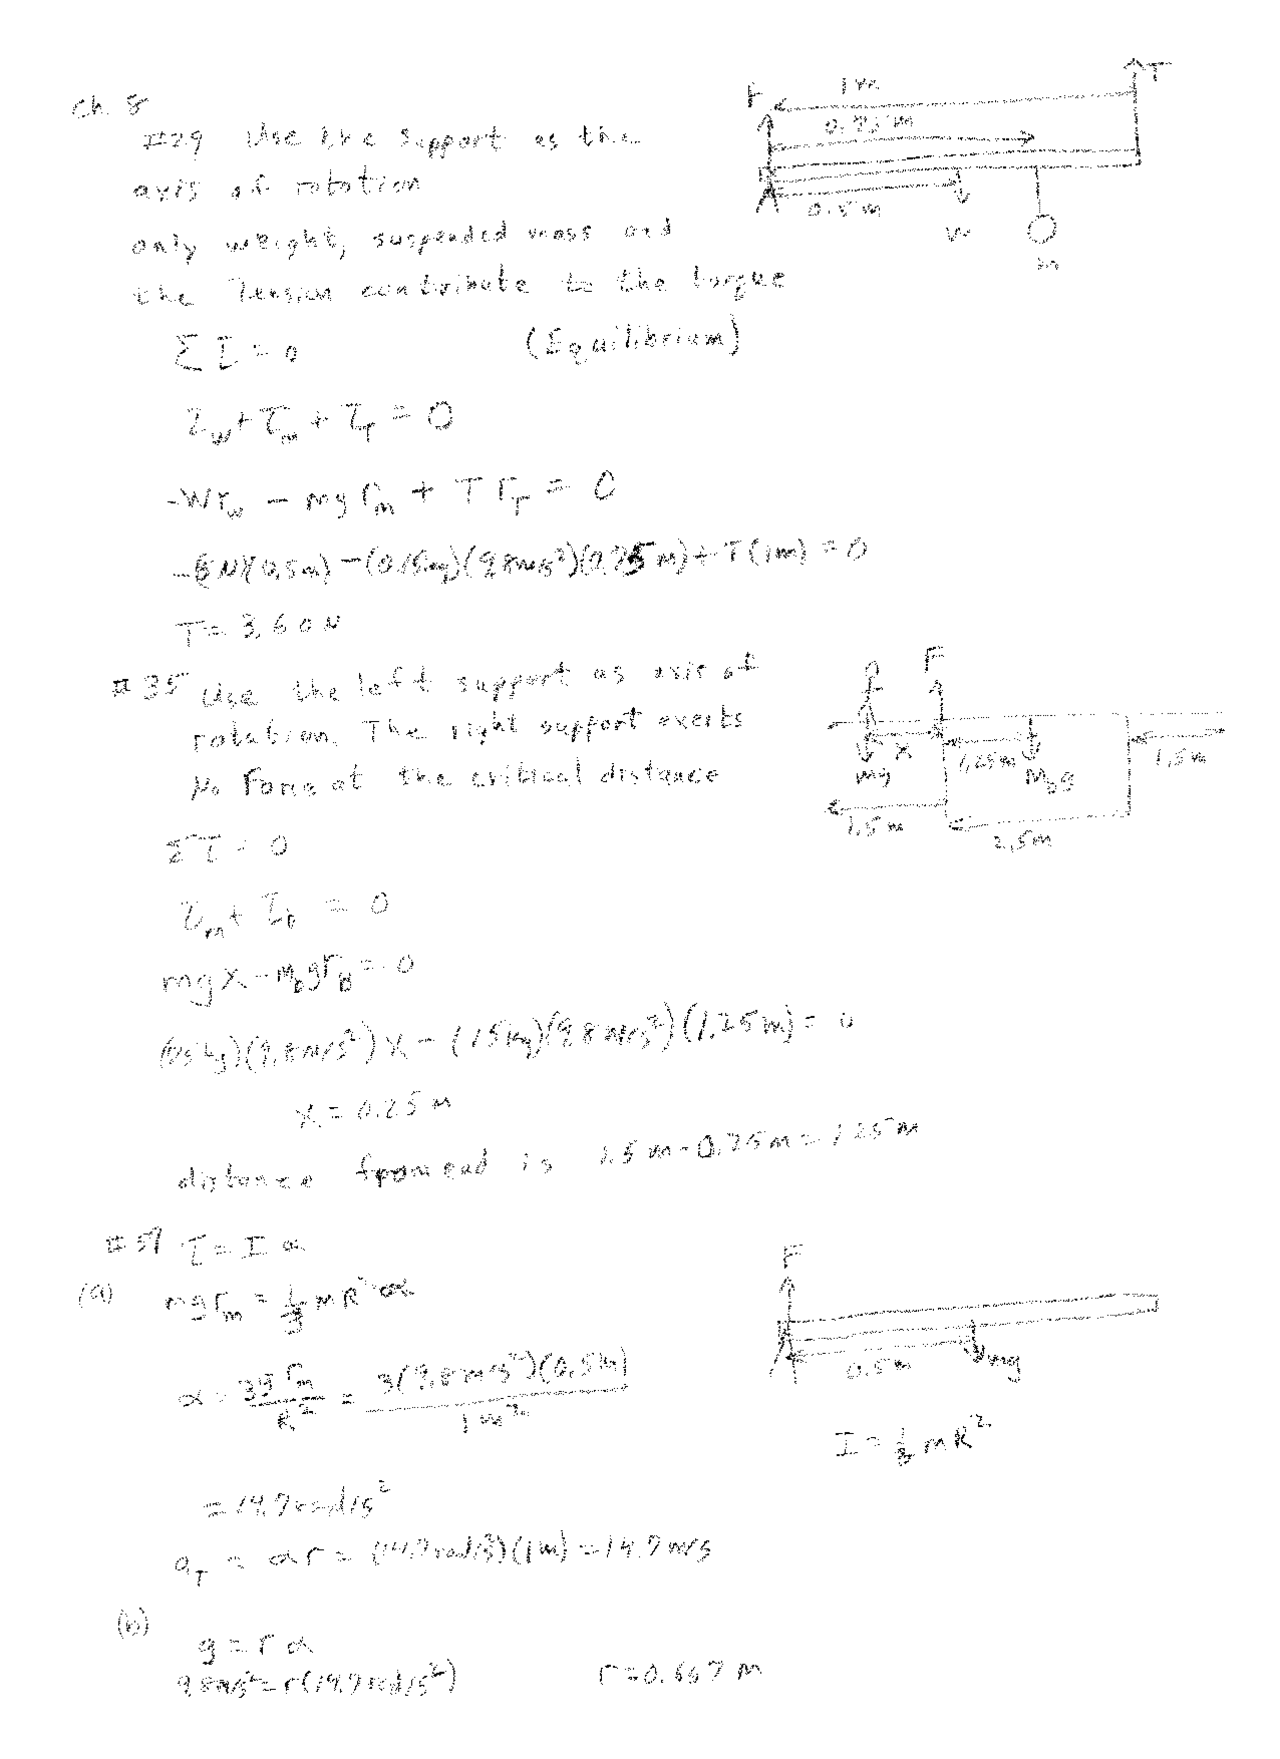 Ch. 8
#29 Use the support as the
axis of rotation
only weight, suspended mass and
the Tension contribute to the torque
Στ = 0 (Equilibrium)
τ_w + τ_m + τ_T = 0
-W r_w - mg r_m + T r_T = 0
-(N)(0.5m) - (0.15kg)(9.8m/s²)(0.75m) + T(1m) = 0
T = 3.60 N
F
1m
T
0.75m
0.5m
W
m
#35 Use the left support as axis of
rotation. The right support exerts
No Force at the critical distance
Στ = 0
τ_m + τ_b = 0
mgx - M_b g r_b = 0
(9.8m/s²)x - (15kg)(9.8m/s²)(1.25m) = 0
x = 0.25m
distance from end is 1.5m - 0.25m = 1.25m
F
x
1.25m
1.5m
mg
M_b g
1.5m
2.5m
#59 τ = Iα
(a) mg r_m = 1/3 mR² α
α = 3g r_m / R² = 3(9.8m/s²)(0.5m) / 1m²
= 14.7 rad/s²
a_T = αr = (14.7rad/s²)(1m) = 14.7 m/s
F
0.5m
mg
I = 1/3 mR²
(b)
g = rα
9.8m/s² = r(14.7rad/s²) r = 0.667 m